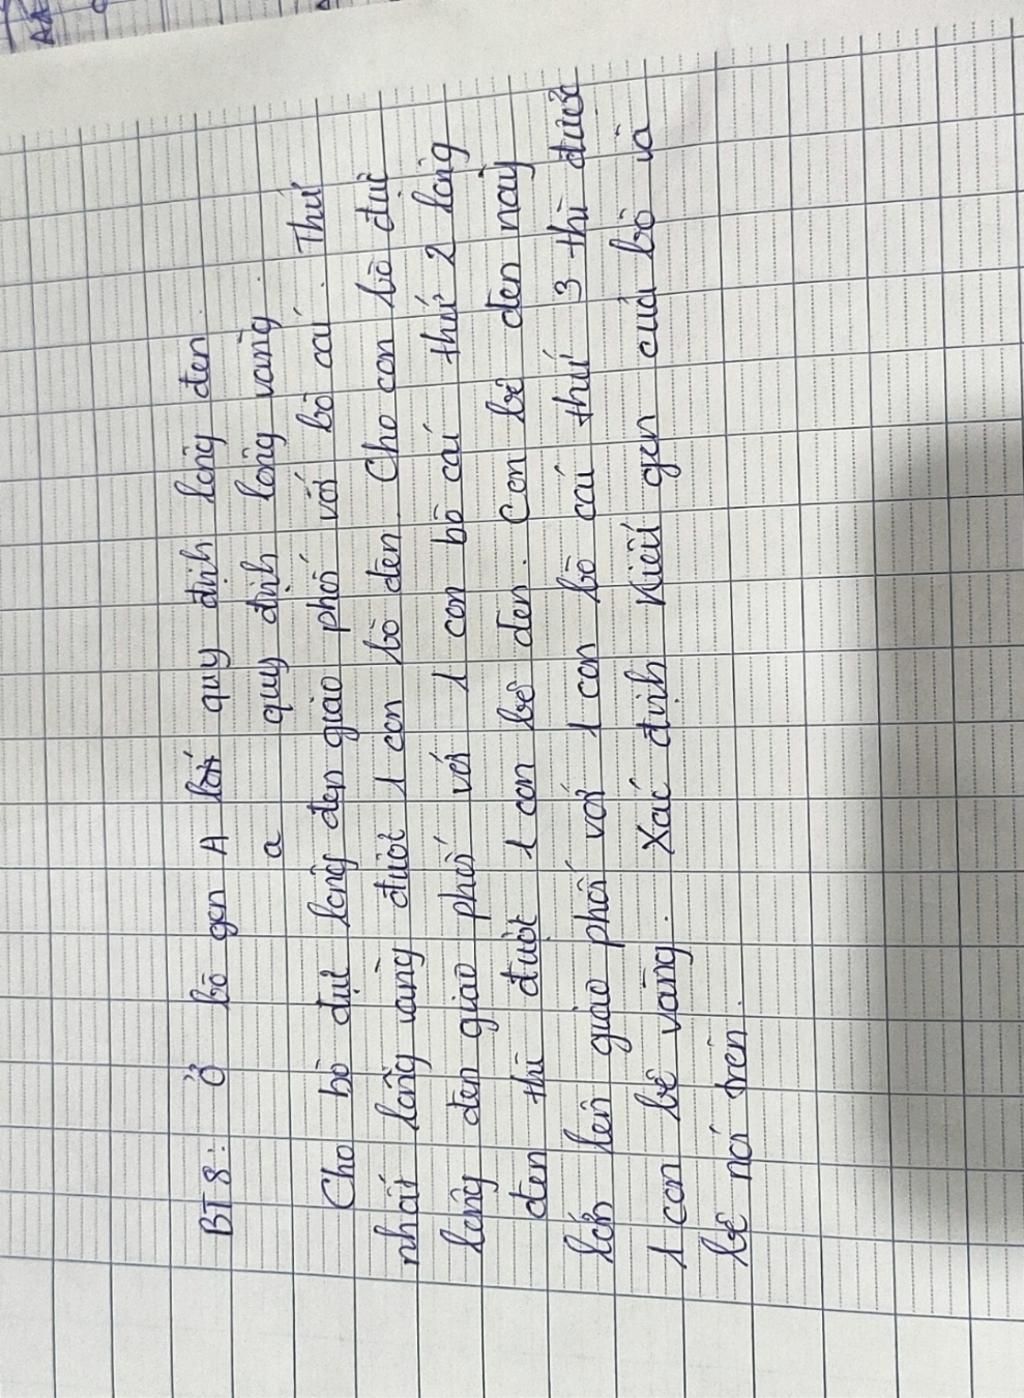 BT8: Ở bò gen A quy định lông đen.
a quy định lông vàng.
Cho bò đực lông đen giao phối với bò cái. Thứ
nhất lông vàng được 1 con bò đen. Cho con bò đực
lông đen giao phối với 1 con bò cái thứ 2 lông
đen thì được 1 con bê đen. Con bê đen này
lớn lên giao phối với 1 con bò cái thứ 3 thì được
1 con bê vàng. Xác định kiểu gen của bò và
bê nói trên.